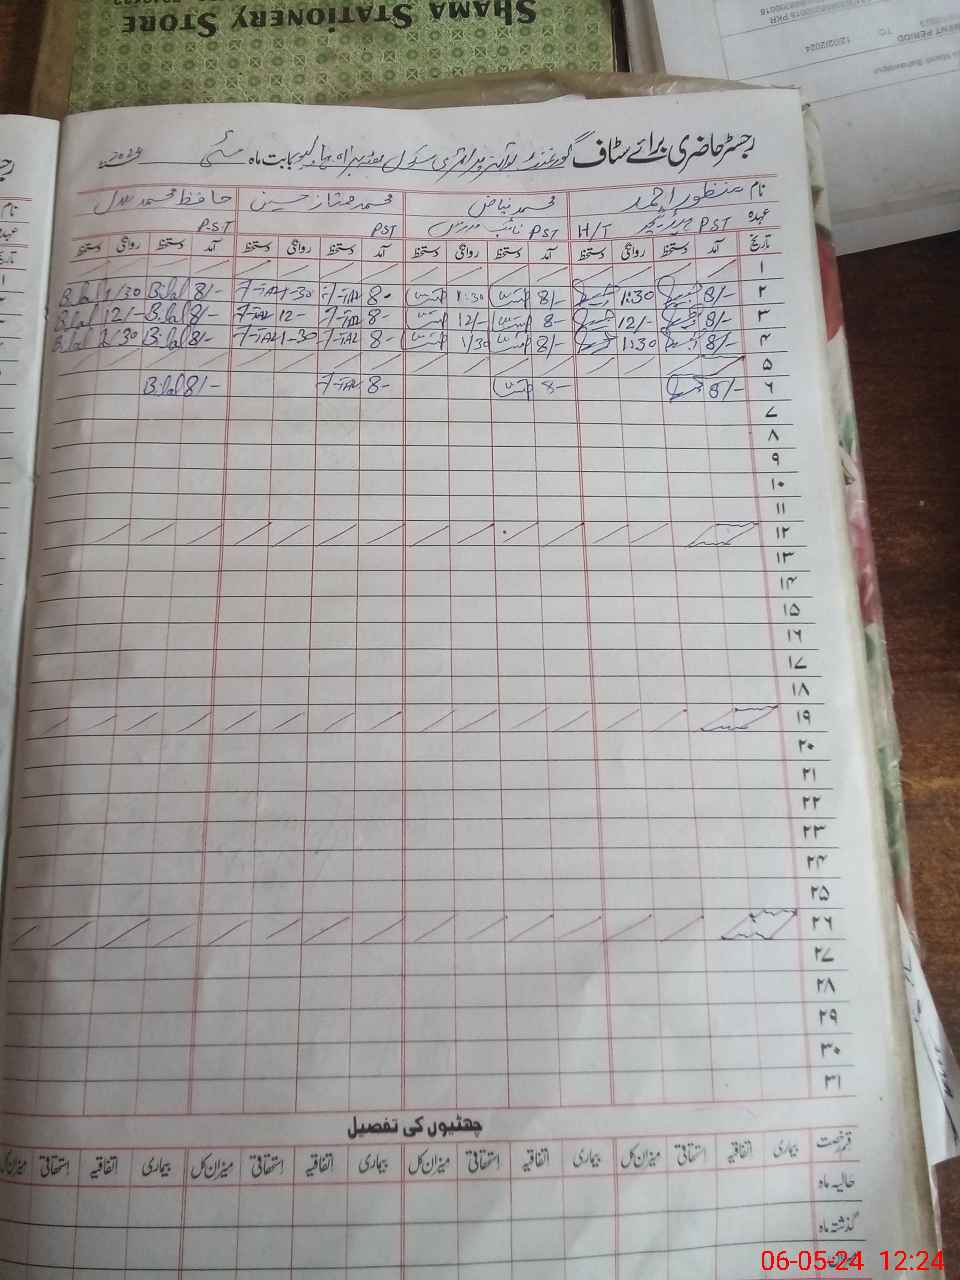 SHAMA STATIONERY
STORE
MENT PERIOD
TO
12/02/2024
PKR
رجسٹر حاضری برائے سٹاف گورنمنٹ بوائز پرائمری سکول بابت ماہ مئی 2024ء
نام منظور احمد محمد نیاض محمد ممتاز حسین حافظ محمد بلال
عہدہ PST H/T PST نائب مدرس PST P.S.T
تاریخ آمد دستخط روانگی دستخط آمد دستخط روانگی دستخط آمد دستخط روانگی دستخط آمد دستخط روانگی دستخط
۱
۲ 8/- 1:30 8/- 1:30 8- 1-30 8/- Bilal 1/30 Bilal
۳ 8/- 12/- 8- 12/- 8- 12- 8/- Bilal 12/- Bilal
۴ 8/- 1:30 8/- 1/30 8- 1-30 8/- Bilal 1/30 Bilal
۵
۶ 8/- 8- 8- 8/- Bilal
۷
۸
۹
۱۰
۱۱
۱۲
۱۳
۱۴
۱۵
۱۶
۱۷
۱۸
۱۹
۲۰
۲۱
۲۲
۲۳
۲۴
۲۵
۲۶
۲۷
۲۸
۲۹
۳۰
۳۱
چھٹیوں کی تفصیل
قسم رخصت بیماری اتفاقیہ استحقاقی میزان کل بیماری اتفاقیہ استحقاقی میزان کل بیماری اتفاقیہ استحقاقی میزان کل بیماری اتفاقیہ استحقاقی میزان کل
حالیہ ماہ
گذشتہ ماہ
06-05-24 12:24